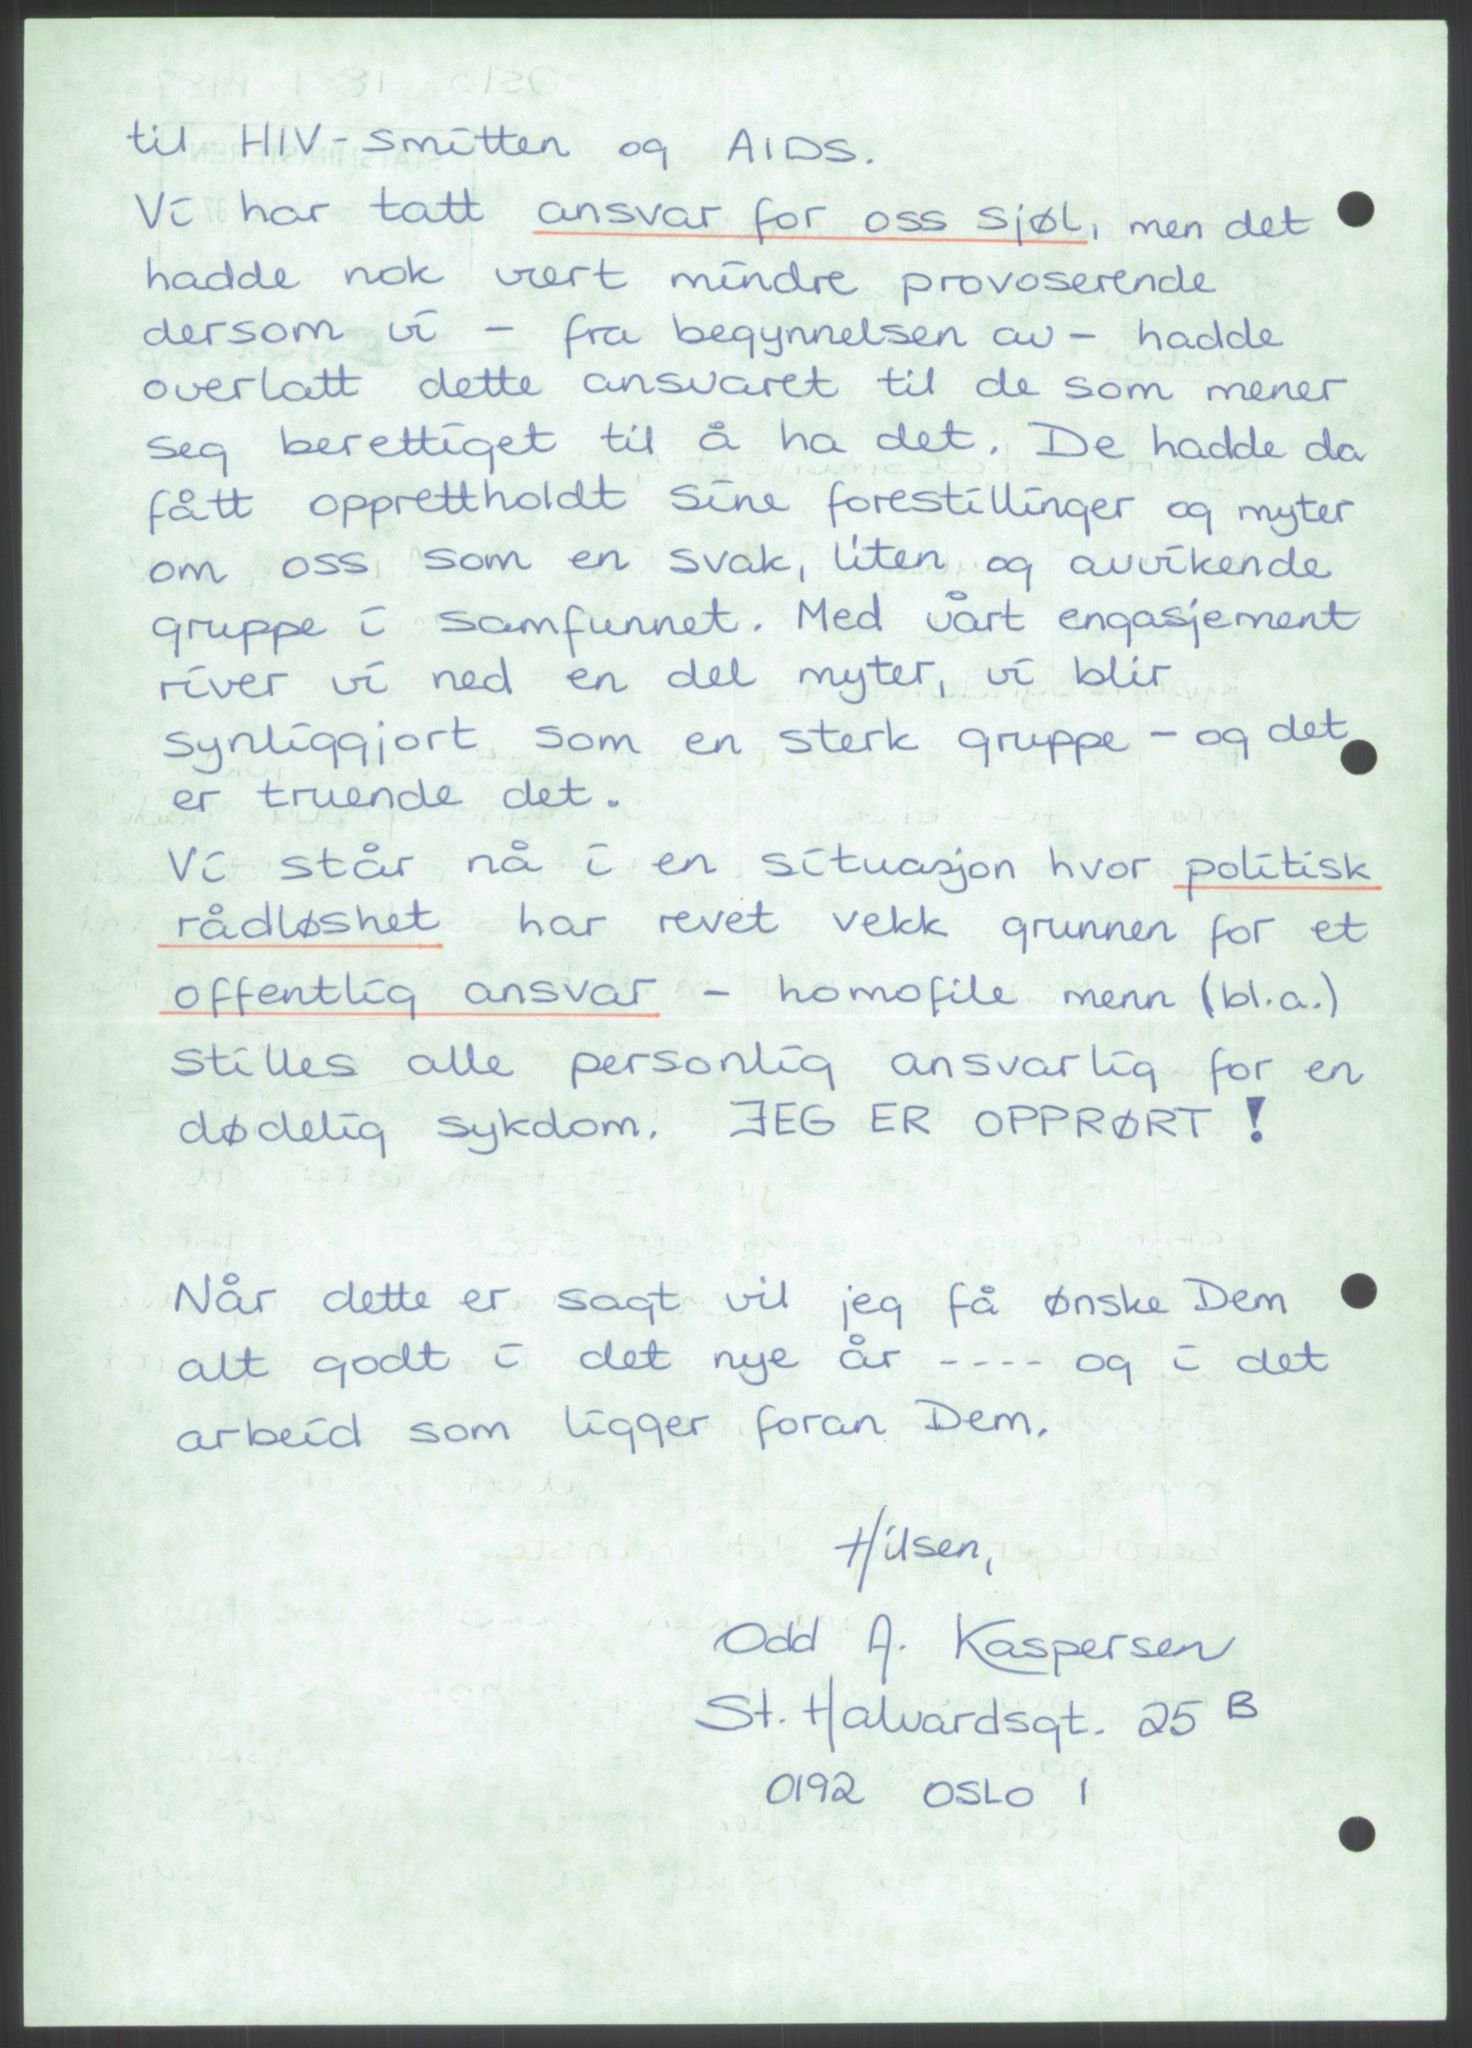 til HIV-smitten og AIDS.
Vi har tatt ansvar for oss sjøl, men det
hadde nok vært mindre provoserende
dersom vi - fra begynnelsen av - hadde
overlatt dette ansvaret til de som mener
seg berettiget til å ha det. De hadde da
fått opprettholdt sine forestillinger og myter
om oss som en svak, liten og avvikende
gruppe i samfunnet. Med vårt engasjement
river vi ned en del myter, vi blir
synliggjort som en sterk gruppe - og det
er truende det.
Vi står nå i en situasjon hvor politisk
rådløshet har revet vekk grunnen for et
offentlig ansvar - homofile menn (bl.a.)
stilles alle personlig ansvarlig for en
dødelig sykdom. JEG ER OPPRØRT !
Når dette er sagt vil jeg få ønske Dem
alt godt i det nye år ---- og i det
arbeid som ligger foran Dem.
Hilsen,
Odd A. Kaspersen
St. Halvardsgt. 25 B
0192 OSLO 1